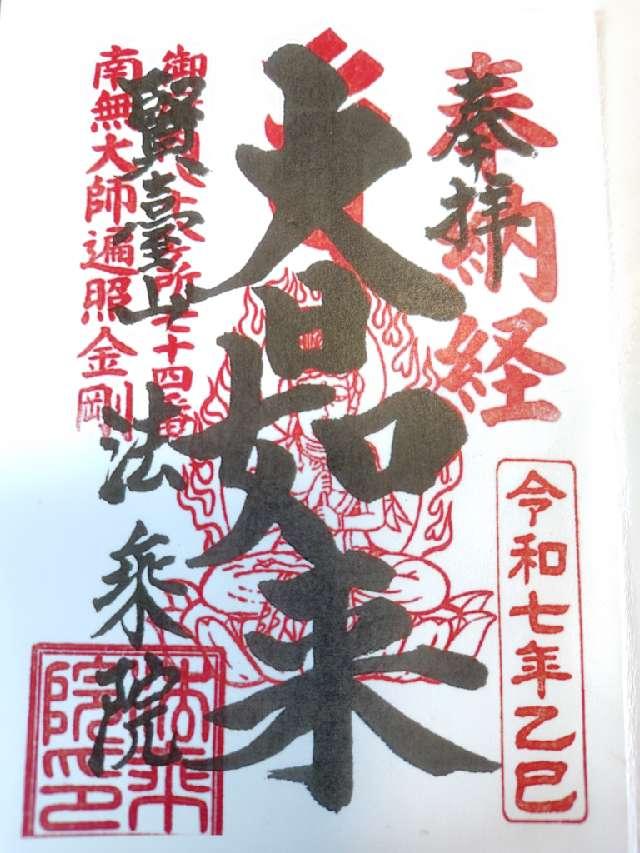 奉拝
納経
令和七年乙巳
大日如来
御府内八十八ヶ所七十四番
南無大師遍照金剛
賢臺山
法乗院
法乗院印